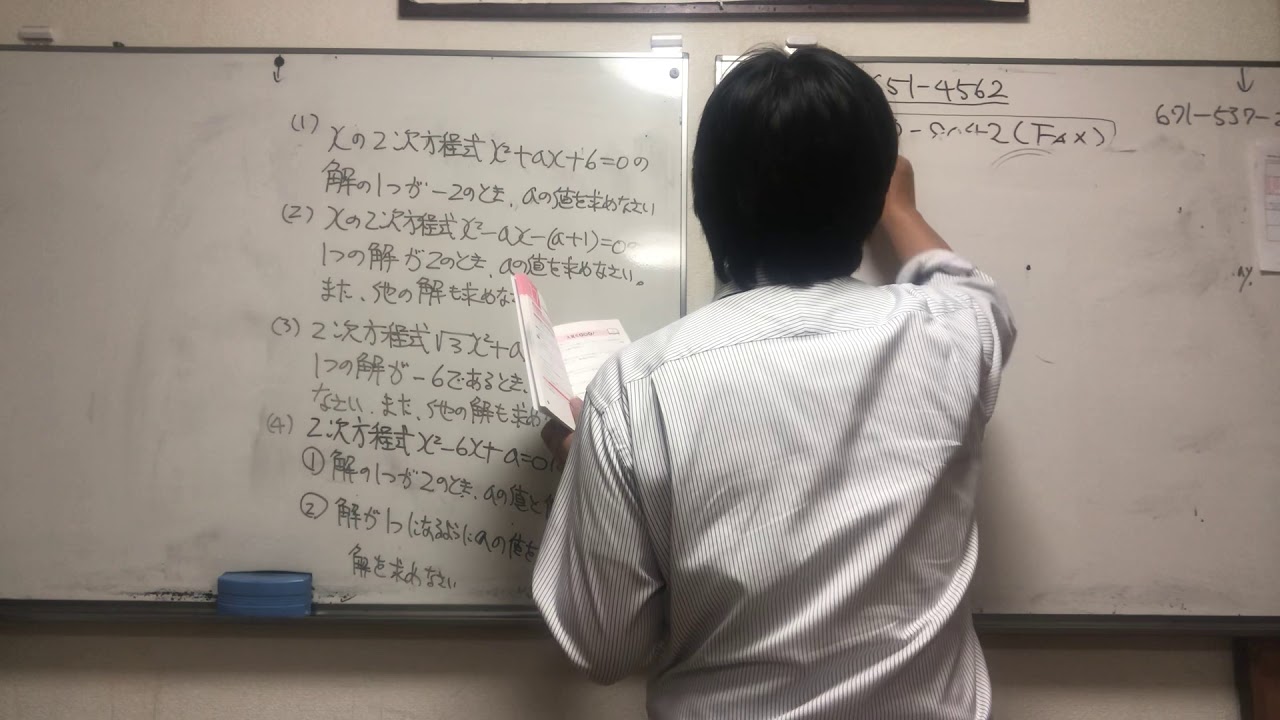 (1) xの2次方程式x²+ax+6=0の
解の1つが-2のとき、aの値を求めなさい
(2) xの2次方程式x²-ax-(a+1)=0の
1つの解が2のとき、aの値を求めなさい。
また、他の解も求めな
(3) 2次方程式√3x²+a
1つの解が-6であるとき、
なさい、また、他の解も求め
(4) 2次方程式x²-6x+a=0
① 解の1つが2のとき、aの値と
② 解が1つになるようにaの値を
解を求めなさい
651-4562
2(FAX)
671-537-